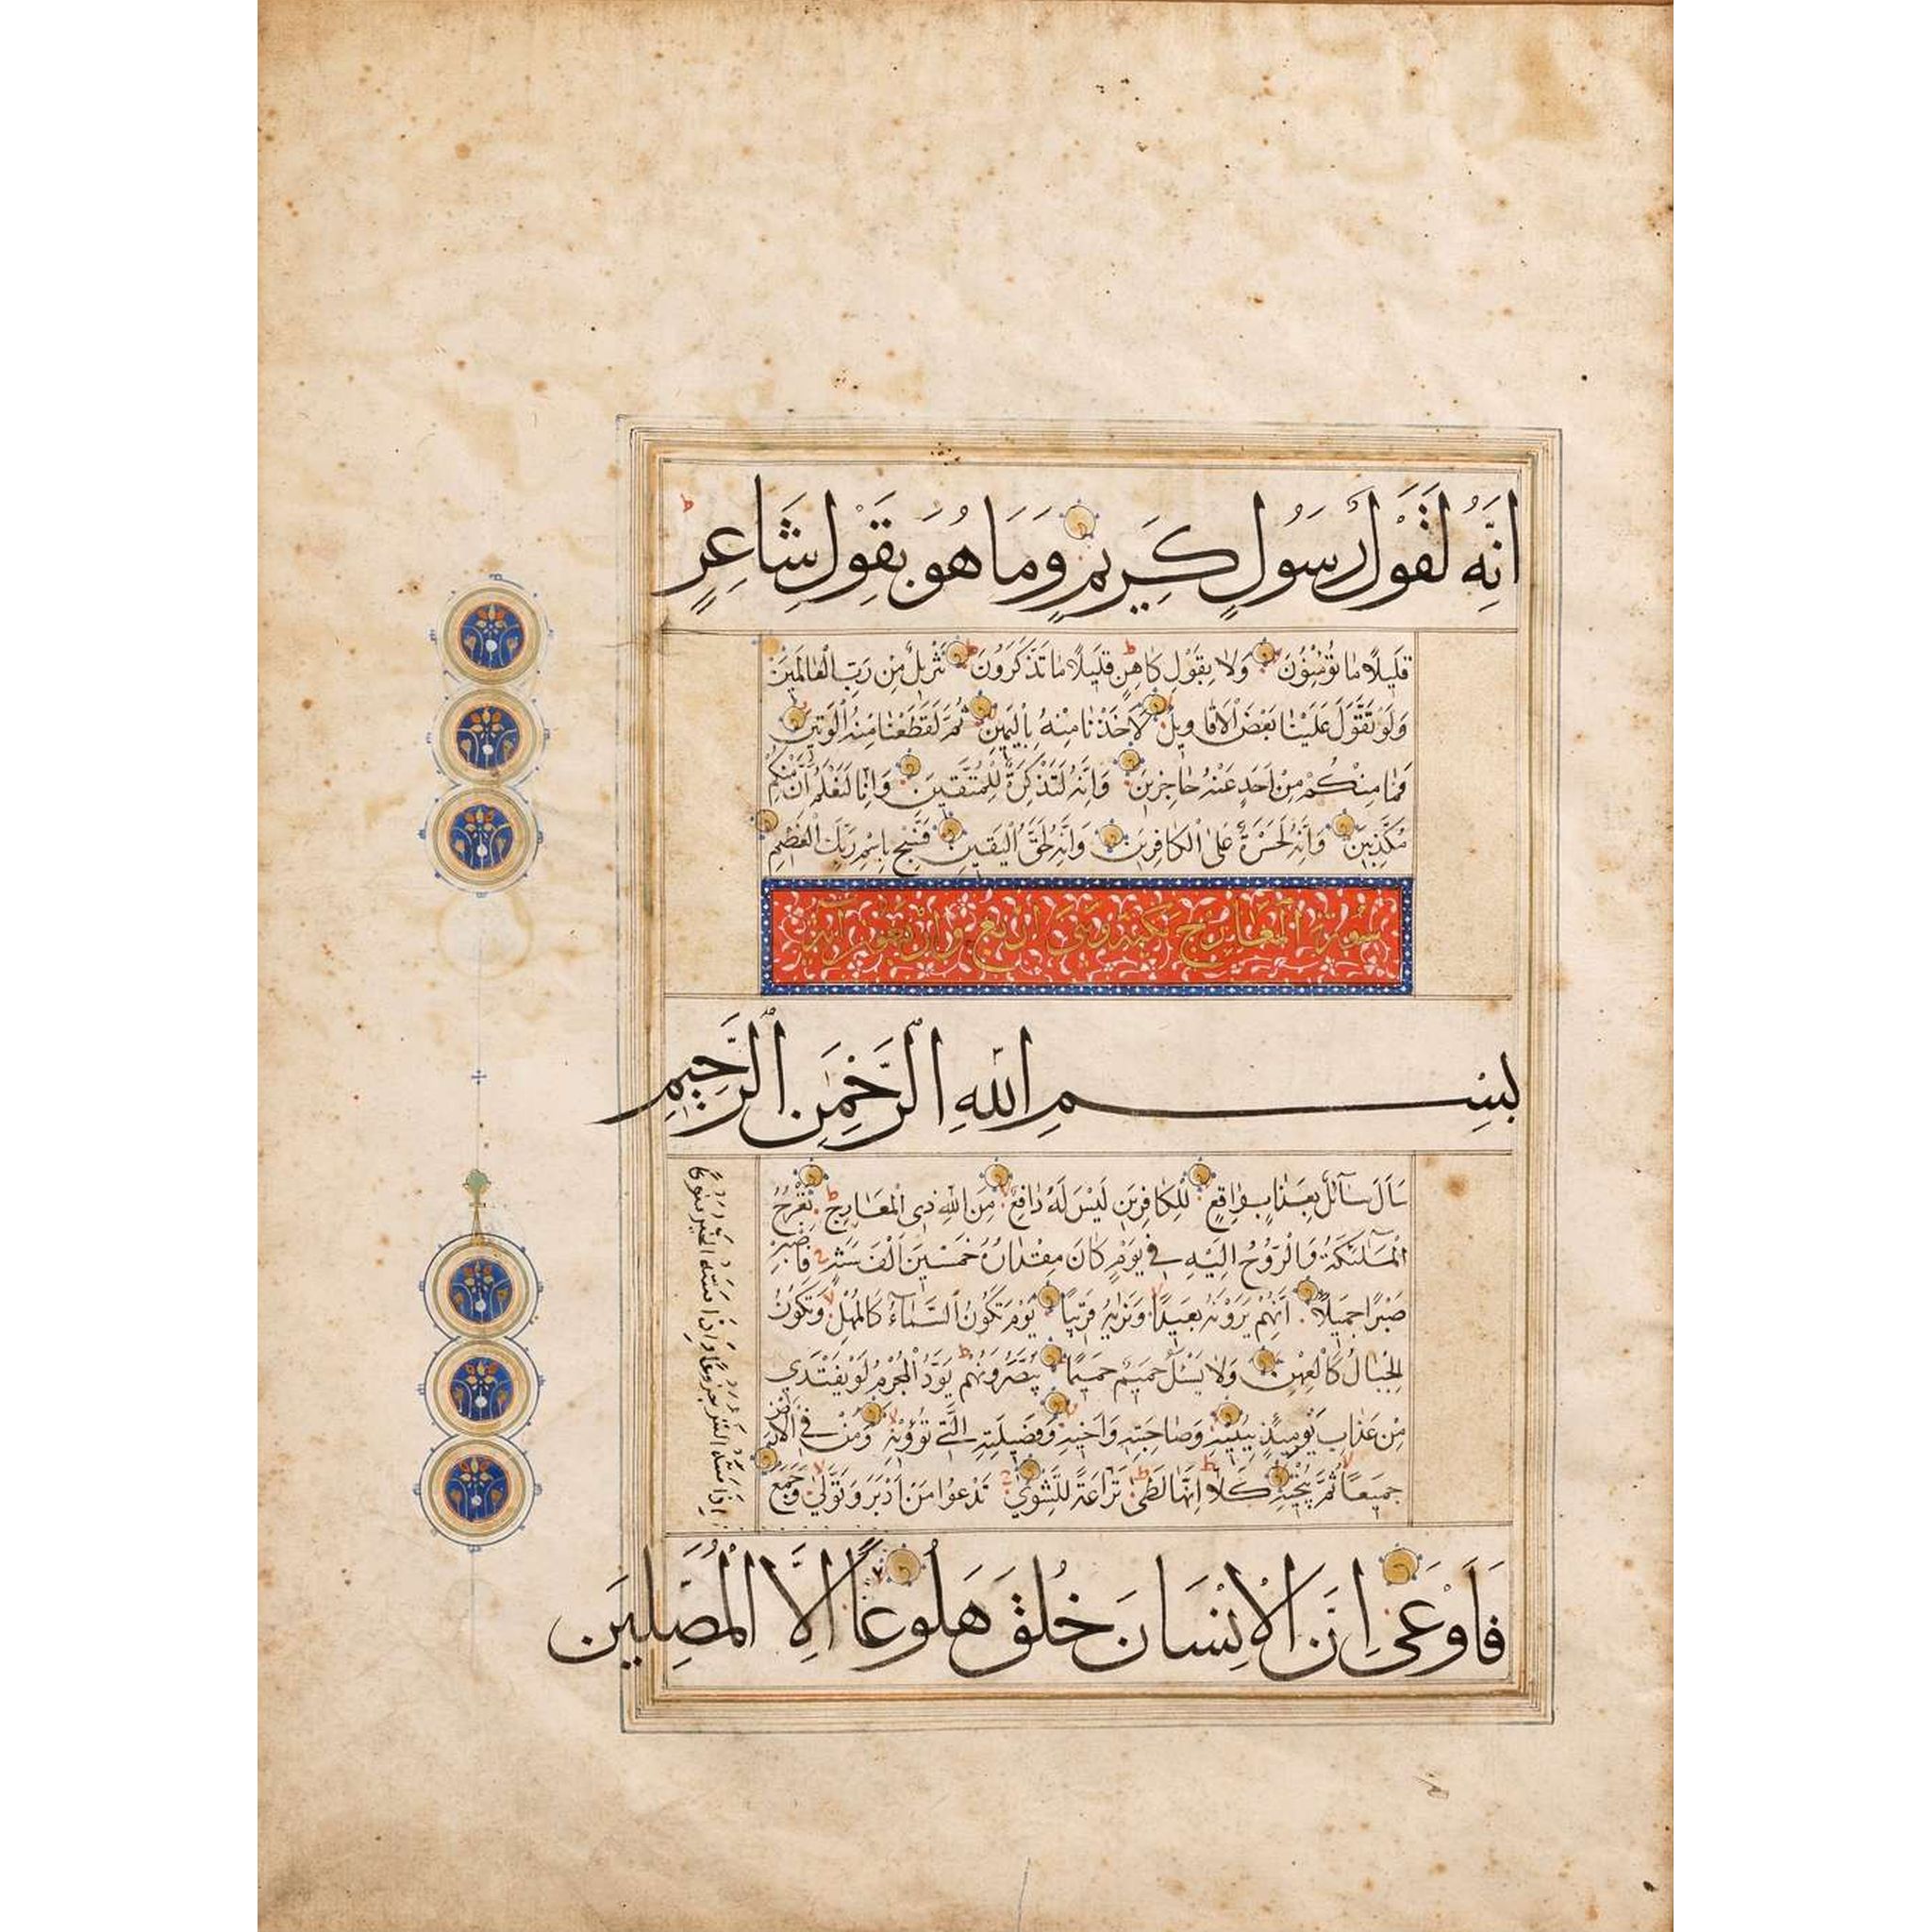 اِنَّهُ لَقَوْلُ رَسُولٍ كَرِيمٍ وَمَا هُوَ بِقَوْلِ شَاعِرٍ ط
قَلِيلًا مَا تُؤْمِنُونَ وَلَا بِقَوْلِ كَاهِنٍ ط قَلِيلًا مَا تَذَكَّرُونَ ط تَنْزِيلٌ مِنْ رَبِّ الْعَالَمِينَ
وَلَوْ تَقَوَّلَ عَلَيْنَا بَعْضَ الْاَقَاوِيلِ لَاَخَذْنَا مِنْهُ بِالْيَمِينِ ثُمَّ لَقَطَعْنَا مِنْهُ الْوَتِينَ
فَمَا مِنْكُمْ مِنْ اَحَدٍ عَنْهُ حَاجِزِينَ وَاِنَّهُ لَتَذْكِرَةٌ لِلْمُتَّقِينَ وَاِنَّا لَنَعْلَمُ اَنَّ مِنْكُمْ
مُكَذِّبِينَ وَاِنَّهُ لَحَسْرَةٌ عَلَى الْكَافِرِينَ وَاِنَّهُ لَحَقُّ الْيَقِينِ فَسَبِّحْ بِاسْمِ رَبِّكَ الْعَظِيمِ
سُورَةُ الْمَعَارِجِ مَكِّيَّةٌ وَهِيَ اَرْبَعٌ وَاَرْبَعُونَ آيَةً
بِسْمِ اللّٰهِ الرَّحْمٰنِ الرَّحِيمِ
سَاَلَ سَآئِلٌ بِعَذَابٍ وَاقِعٍ لِلْكَافِرِينَ لَيْسَ لَهُ دَافِعٌ مِنَ اللّٰهِ ذِي الْمَعَارِجِ ط تَعْرُجُ
الْمَلٰٓئِكَةُ وَالرُّوحُ اِلَيْهِ فِي يَوْمٍ كَانَ مِقْدَارُهُ خَمْسِينَ اَلْفَ سَنَةٍ فَاصْبِرْ
صَبْرًا جَمِيلًا اِنَّهُمْ يَرَوْنَهُ بَعِيدًا وَنَرٰيهُ قَرِيبًا يَوْمَ تَكُونُ السَّمَآءُ كَالْمُهْلِ وَتَكُونُ
الْجِبَالُ كَالْعِهْنِ وَلَا يَسْـَٔلُ حَمِيمٌ حَمِيمًا يُبَصَّرُونَهُمْ ط يَوَدُّ الْمُجْرِمُ لَوْ يَفْتَدِي
مِنْ عَذَابِ يَوْمِئِذٍ بِبَنِيهِ وَصَاحِبَتِهِ وَاَخِيهِ وَفَصِيلَتِهِ الَّتِي تُؤْوِيهِ وَمَنْ فِي الْاَرْضِ
جَمِيعًا ثُمَّ يُنْجِيهِ كَلَّا ط اِنَّهَا لَظٰى ط نَزَّاعَةً لِلشَّوٰى تَدْعُوا مَنْ اَدْبَرَ وَتَوَلّٰى وَجَمَعَ
اِذَا مَسَّهُ الشَّرُّ جَزُوعًا وَاِذَا مَسَّهُ الْخَيْرُ مَنُوعًا
فَاَوْعٰى اِنَّ الْاِنْسَانَ خُلِقَ هَلُوعًا اِلَّا الْمُصَلِّينَ